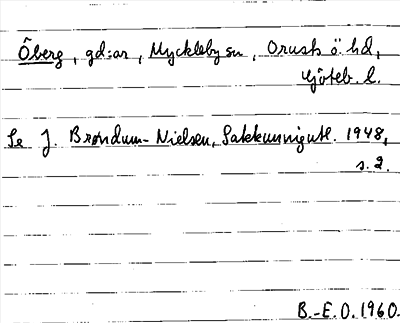 Öberg, gd:ar, Myckleby sn, Orusts ö. hd,
Göteb. l.
Se J. Brøndum-Nielsen, Sakkunnigutl. 1948,
s. 2.
B.-E. O. 1960.